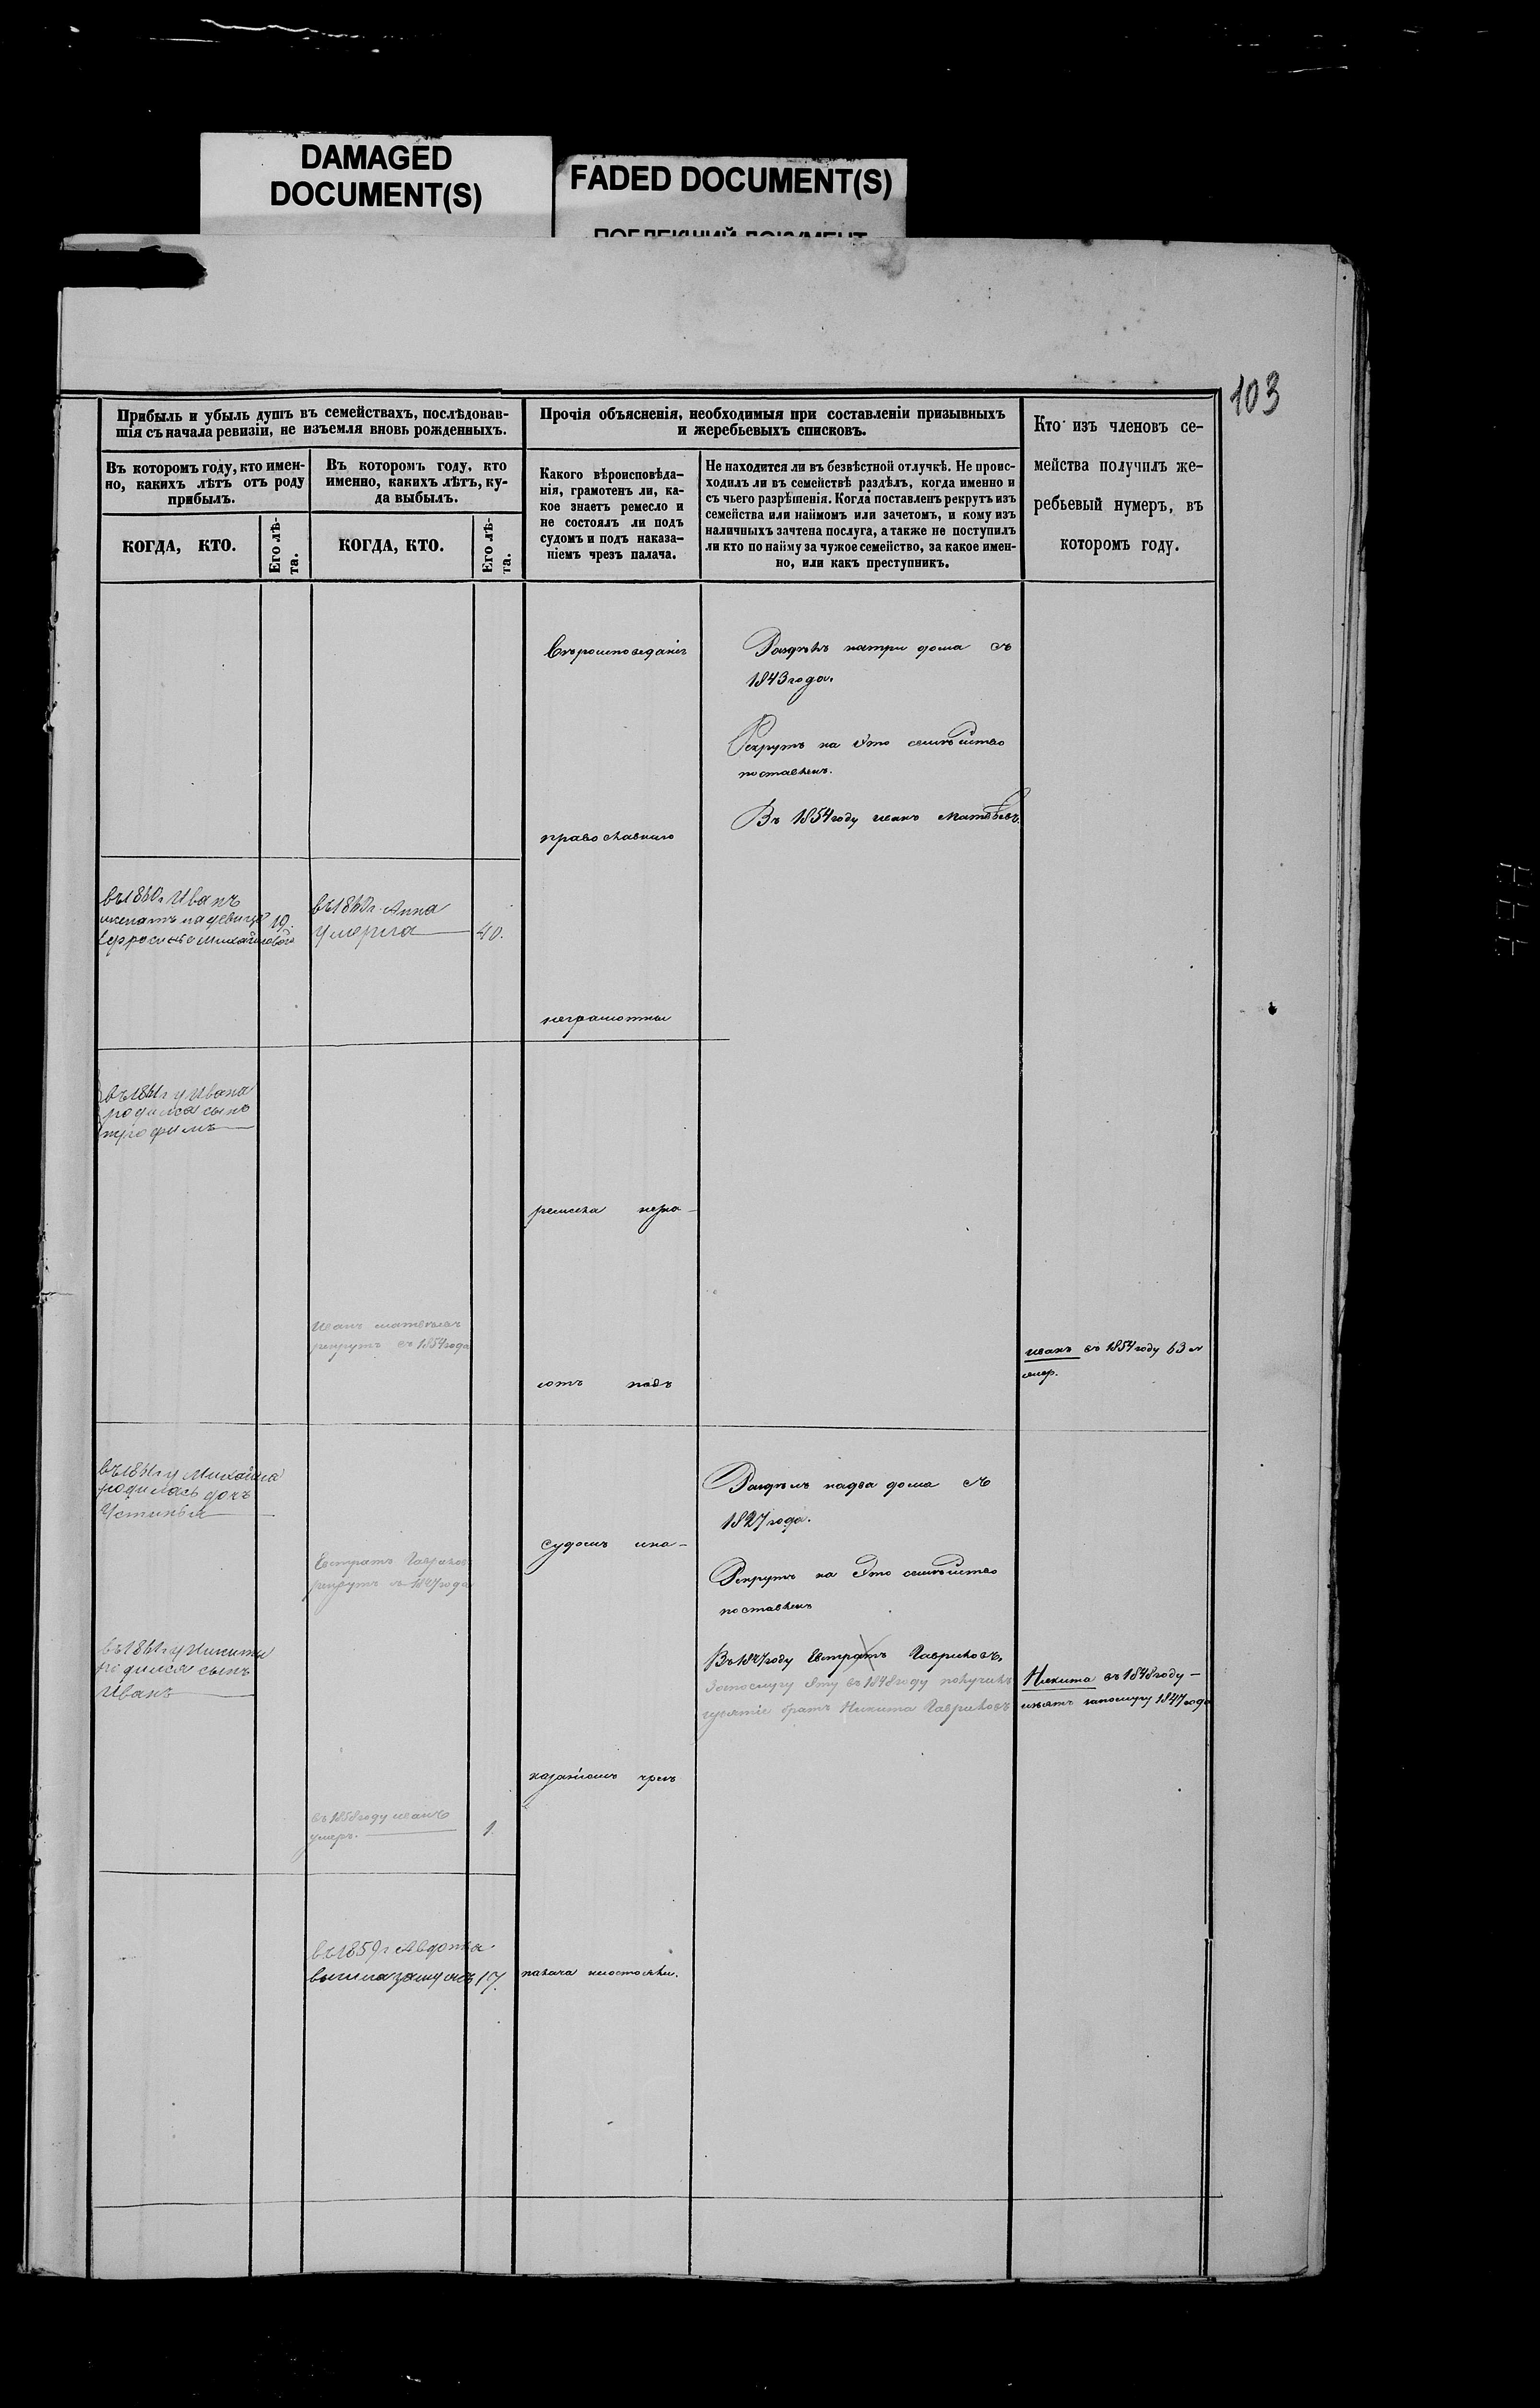 DAMAGED
DOCUMENT(S)
FADED DOCUMENT(S)
103
Прибыль и убыль душъ въ семействахъ, послѣдовав-
шія съ начала ревизіи, не изъемля вновь рожденныхъ.
Въ которомъ году, кто имен-
но, какихъ лѣтъ отъ роду
прибылъ.
КОГДА, КТО.
Его лѣ-
та.
Въ которомъ году, кто
именно, какихъ лѣтъ, ку-
да выбылъ.
КОГДА, КТО.
Его лѣ-
та.
Прочія объясненія, необходимыя при составленіи призывныхъ
и жеребьевыхъ списковъ.
Какого вѣроисповѣда-
нія, грамотенъ ли, ка-
кое знаетъ ремесло и
не состоялъ ли подъ
судомъ и подъ наказа-
ніемъ чрезъ палача.
Не находится ли въ безвѣстной отлучкѣ. Не проис-
ходилъ ли въ семействѣ раздѣлъ, когда именно и
съ чьего разрѣшенія. Когда поставленъ рекрутъ изъ
семейства или наймомъ или зачетомъ, и кому изъ
наличныхъ зачтена послуга, а также не поступилъ
ли кто по найму за чужое семейство, за какое имен-
но, или какъ преступникъ.
Кто изъ членовъ се-
мейства получилъ же-
ребьевый нумеръ, въ
которомъ году.
въ 1860 г Иванъ
женатъ на девице 19.
Ефросинье Михайловой
въ 1861 г у Ивана
родился сынъ
трофимъ
въ 1861 г у Михайла
родилась дочь
Устинья
въ 1861 г у Никиты
родился сынъ
Иванъ
въ 1860 г Анна
умерла 40.
иванъ матвѣевъ
рекрутъ съ 1854 года
Евстратъ Гавриловъ
рекрутъ съ 1847 года
въ 1858 году иванъ
умеръ. 1.
въ 1859 г Авдотья
вышла замужъ 17.
Вѣроисповеданіе
православнаго
неграмотны
ремесла незна-
ютъ подъ
судомъ ина-
казаніемъ чрезъ
палача несостояли.
Раздѣлъ натри дома съ
1843 года.
Рекрутъ на это семѣйство
поставленъ.
Въ 1854 году иванъ матвѣевъ
Раздѣлъ надва дома съ
1827 года.
Рекрутъ на это семѣйство
поставленъ
Въ 1847 году Евстратъ Гавриловъ,
Запослугу эту въ 1848 году получилъ
изъятіе братъ Никита Гавриловъ
иванъ въ 1854 году 63 н
умер.
Никита въ 1848 году —
изъятъ запослугу 1847 года